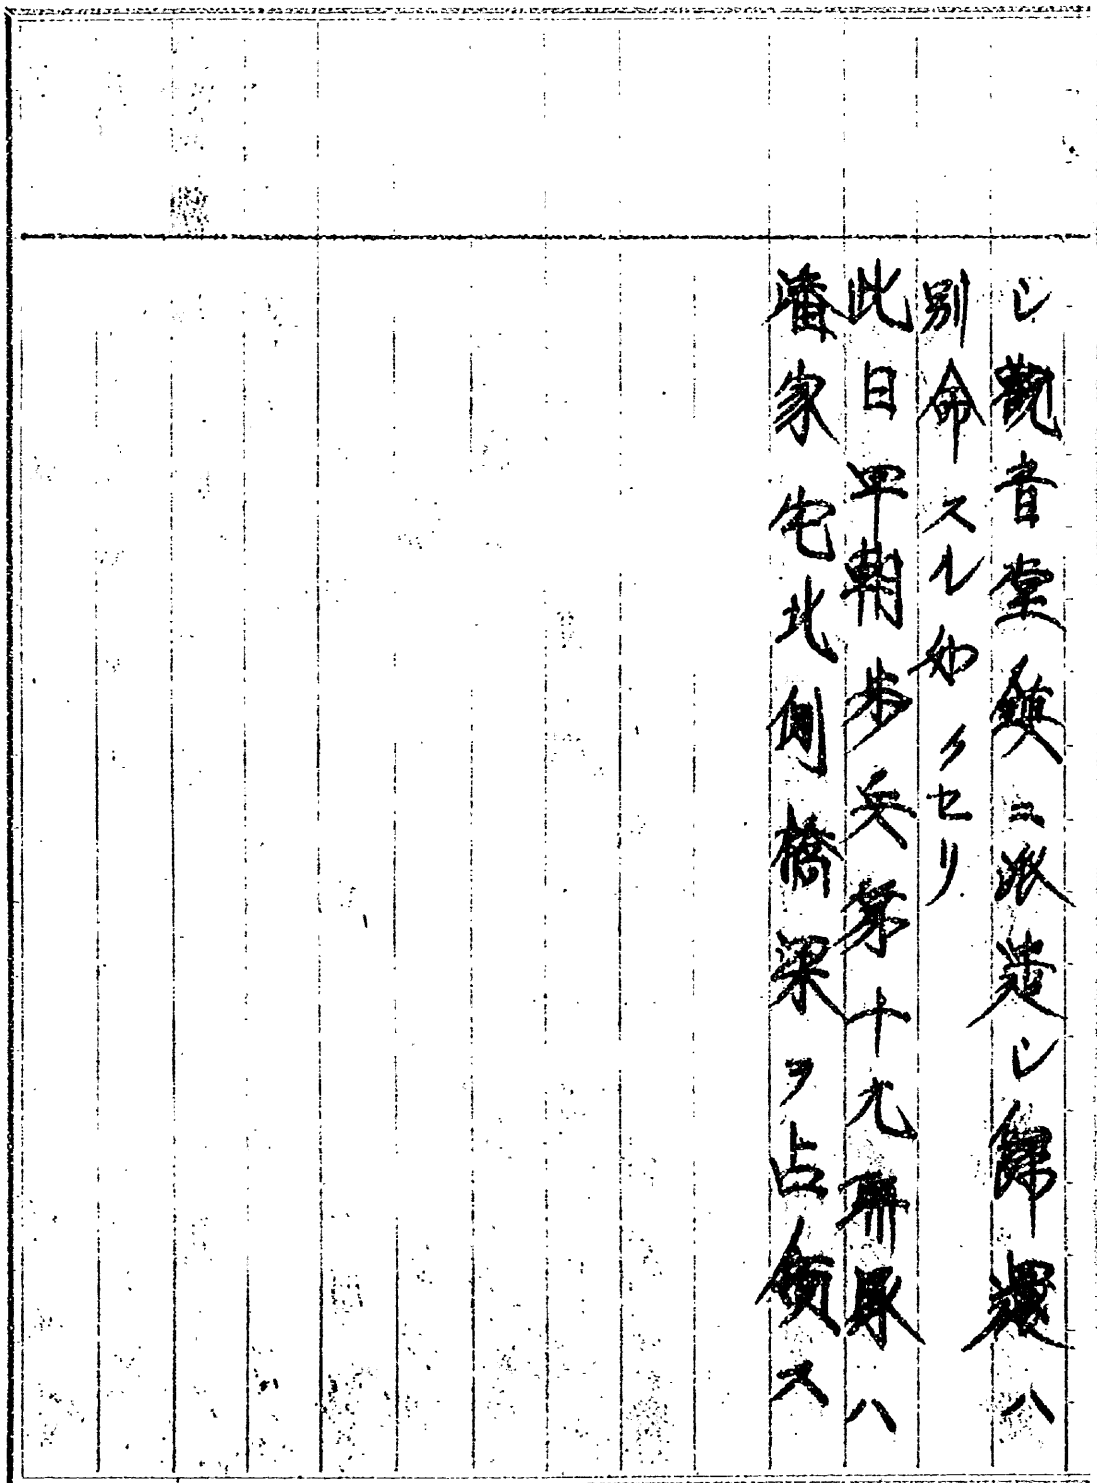 シ觀音堂鎮ニ派遣シ歸還ハ
別命スル如クセリ
此日早朝歩兵第十九聯隊ハ
潘家宅北側橋梁ヲ占領ス